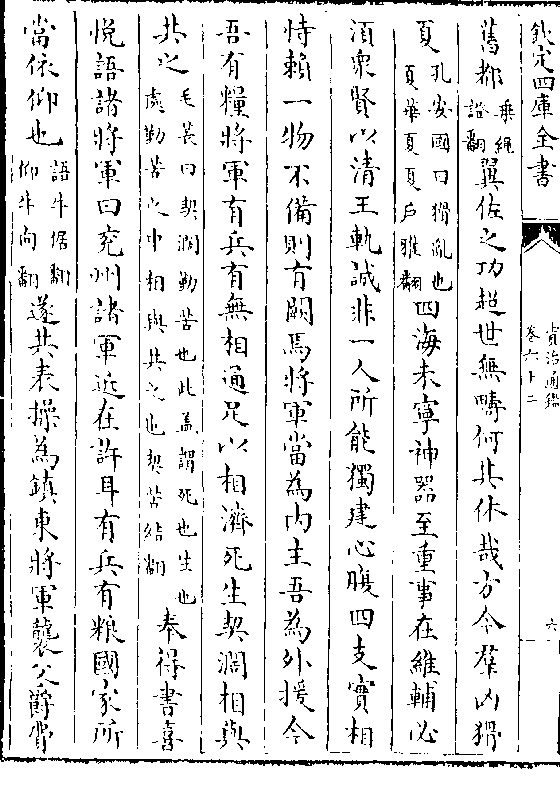 欽定四庫全書
資治通鑑
卷六十二
六
舊都乘繩證翻翼佐之功超世無疇何其休哉方今羣凶猾
夏孔安國曰猾亂也夏華夏夏户雅翻四海未寧神器至重事在維輔必
湏衆賢以清王軌誠非一人所能獨建心腹四支實相
恃賴一物不備則有闕焉將軍當為内主吾為外援今
吾有糧將軍有兵有無相通足以相濟死生契濶相與
共之毛萇曰契濶勤苦也此盖謂死也生也處勤苦之中相與共之也契苦結翻奉得書喜
悅語諸將軍曰兖州諸軍近在許耳有兵有粮國家所
當依仰也語牛倨翻仰牛向翻遂共表操為鎮東將軍襲父爵費